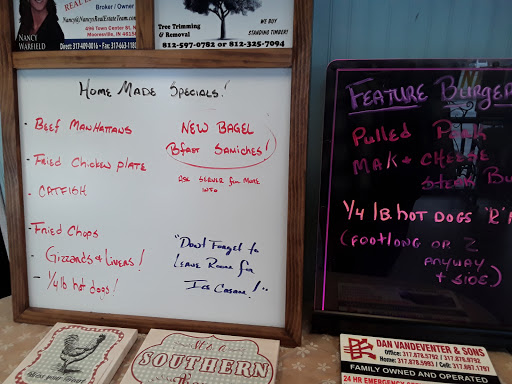 Broker / Owner
Nancy@NancysRealEstateTeam.com
496 Town Center St. N
Mooresville, IN 46158
NANCY
WARFIELD
Direct: 317-409-0016 - Fax: 317-663-
Tree Trimming
& Removal
WE BUY
STANDING TIMBER!
812-597-0782 or 812-325-7094
Home Made Specials!
- Beef Manhattans
- Fried Chicken Plate
- Catfish
- Fried Chops
- Gizzards & Livers!
- 1/4 lb hot dogs!
New Bagel
Bfast Samiches!
Ask Server for more
info
"Don't Forget to
Leave Room for
Ice Cream!"
Feature Burger
Pulled Pork
Mak & Cheese
Steak Bu
1/4 lb. hot dogs "R"
(footlong or 2
anyway
+ side)
SOUTHERN
DAN VANDEVENTER & SONS
Office: 317.878.5792 / 317.878.9792
Home: 317.878.5993 / Cell: 317.697.1797
FAMILY OWNED AND OPERATED
24 HR EMERGENCY